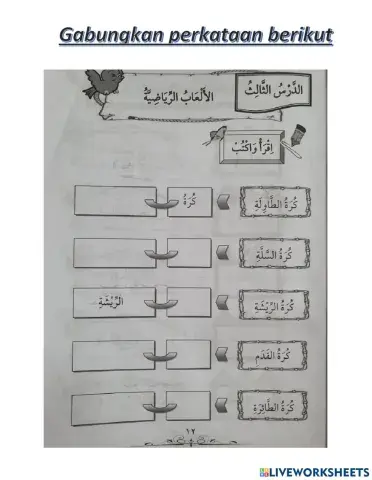 Gabungkan perkataan berikut
الدَّرْسُ الثَّالِثُ
الأَلْعَابُ الرِّيَاضِيَّةُ
اِقْرَأْ وَاكْتُبْ
كُرَةُ الطَّاوِلَةِ
كُرَةُ
كُرَةُ السَّلَّةِ
كُرَةُ الرِّيْشَةِ
الرِّيْشَةِ
كُرَةُ القَدَمِ
كُرَةُ الطَّائِرَةِ
١٢
LIVEWORKSHEETS